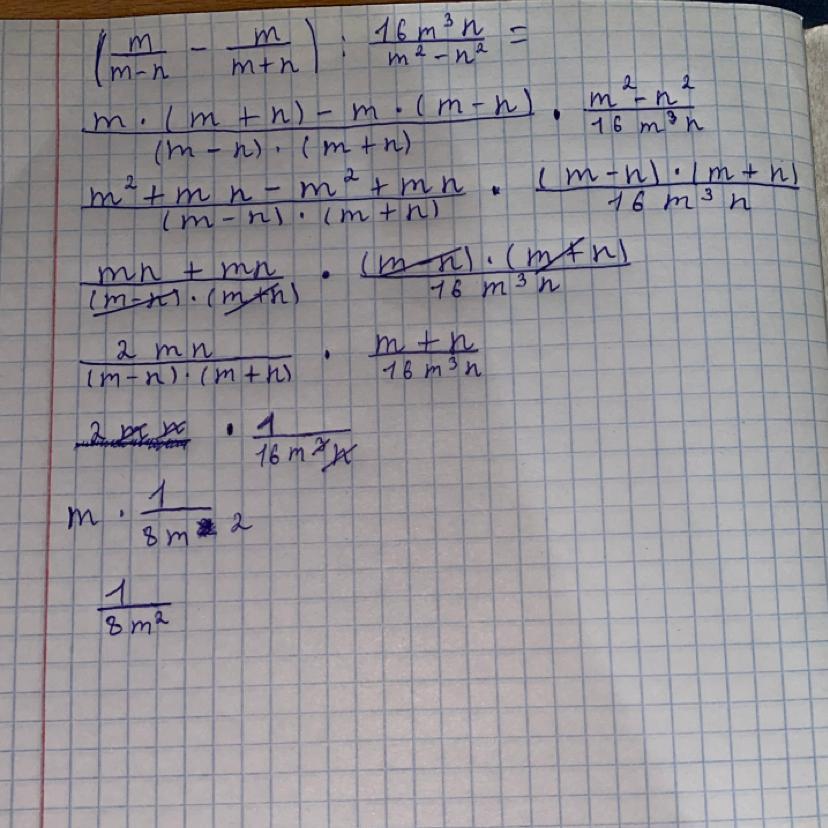 (m/(m-n) - m/(m+n)) : 16m³n/(m²-n²) =
(m·(m+n)-m·(m-n))/((m-n)·(m+n)) · (m²-n²)/(16m³n)
(m²+mn-m²+mn)/((m-n)·(m+n)) · ((m-n)·(m+n))/(16m³n)
(mn+mn)/((m-n)·(m+n)) · ((m-n)·(m+n))/(16m³n)
2mn/((m-n)·(m+n)) · (m+n)/(16m³n)
2mn · 1/(16m³n)
m · 1/(8m 2)
1/(8m²)